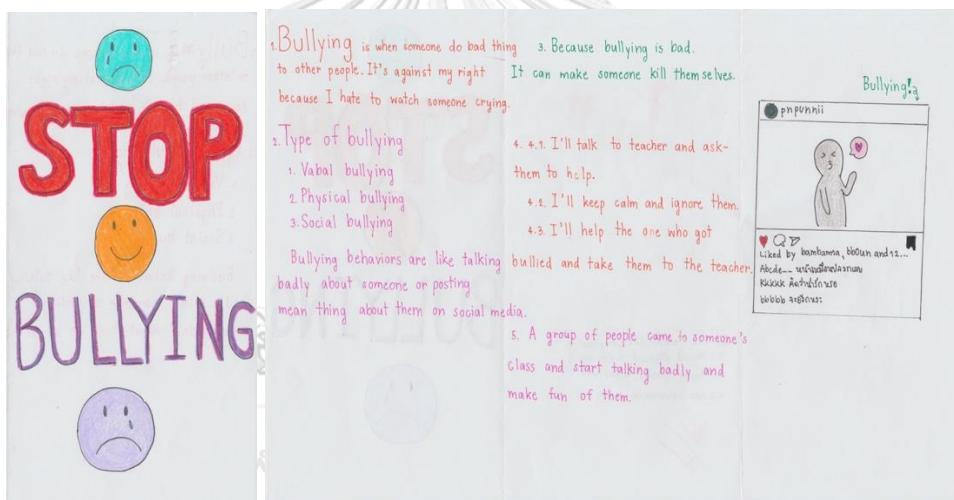 STOP
BULLYING
1. Bullying is when someone do bad thing
to other people. It's against my right
because I hate to watch someone crying.
2. Type of bullying
1. Vabal bullying
2. Physical bullying
3. Social bullying
Bullying behaviors are like talking
badly about someone or posting
mean thing about them on social media.
3. Because bullying is bad.
It can make someone kill themselves.
4. 4.1. I'll talk to teacher and ask-
them to help.
4.2. I'll keep calm and ignore them.
4.3. I'll help the one who got
bullied and take them to the teacher.
5. A group of people came to someone's
class and start talking badly and
make fun of them.
Bullying!
pnpunnii
Liked by bambamma, bb0un and 12...
Abcde__
KKKKK คิดว่าน่ารักหรอ
bbbbbb